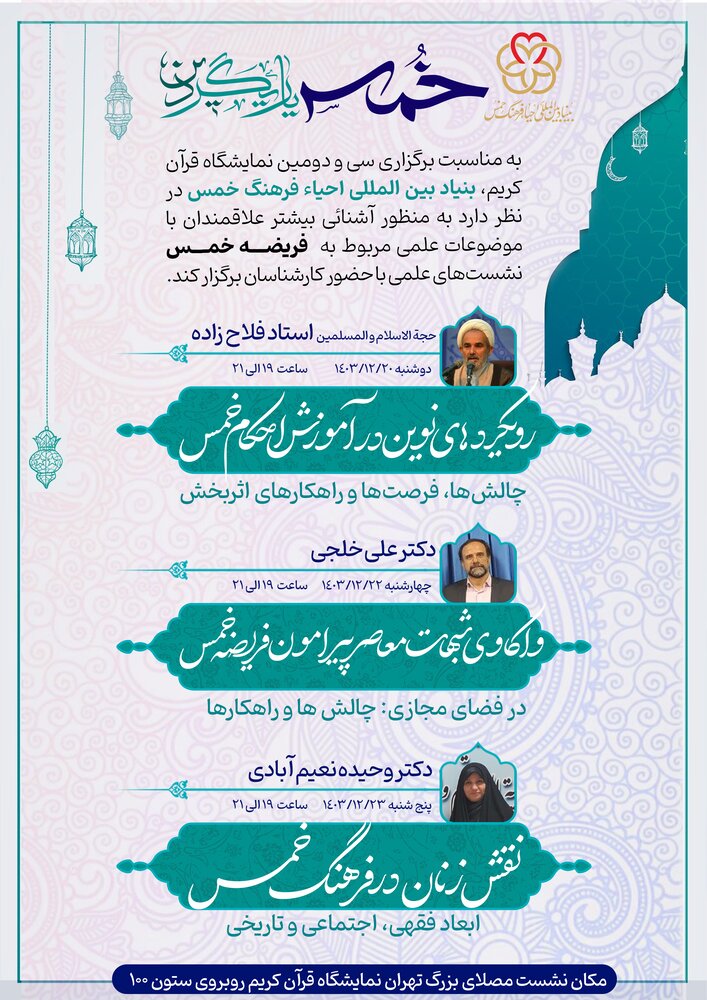 خُمس یاریگر دین
بنیاد بین المللی احیاء فرهنگ خمس
به مناسبت برگزاری سی و دومین نمایشگاه قرآن
کریم، بنیاد بین المللی احیاء فرهنگ خمس در
نظر دارد به منظور آشنائی بیشتر علاقمندان با
موضوعات علمی مربوط به فریضه خمس
نشست‌های علمی با حضور کارشناسان برگزار کند.
حجة الاسلام والمسلمین استاد فلاح زاده
دوشنبه ۱۴۰۳/۱۲/۲۰ ساعت ۱۹ الی ۲۱
رویکردهای نوین در آموزش احکام خمس
چالش‌ها، فرصت‌ها و راهکارهای اثربخش
دکتر علی خلجی
چهارشنبه ۱۴۰۳/۱۲/۲۲ ساعت ۱۹ الی ۲۱
واکاوی شبهات معاصر پیرامون فریضه خمس
در فضای مجازی: چالش ها و راهکارها
دکتر وحیده نعیم آبادی
پنج شنبه ۱۴۰۳/۱۲/۲۳ ساعت ۱۹ الی ۲۱
نقش زنان در فرهنگ خمس
ابعاد فقهی، اجتماعی و تاریخی
مکان نشست مصلای بزرگ تهران نمایشگاه قرآن کریم روبروی ستون ۱۰۰